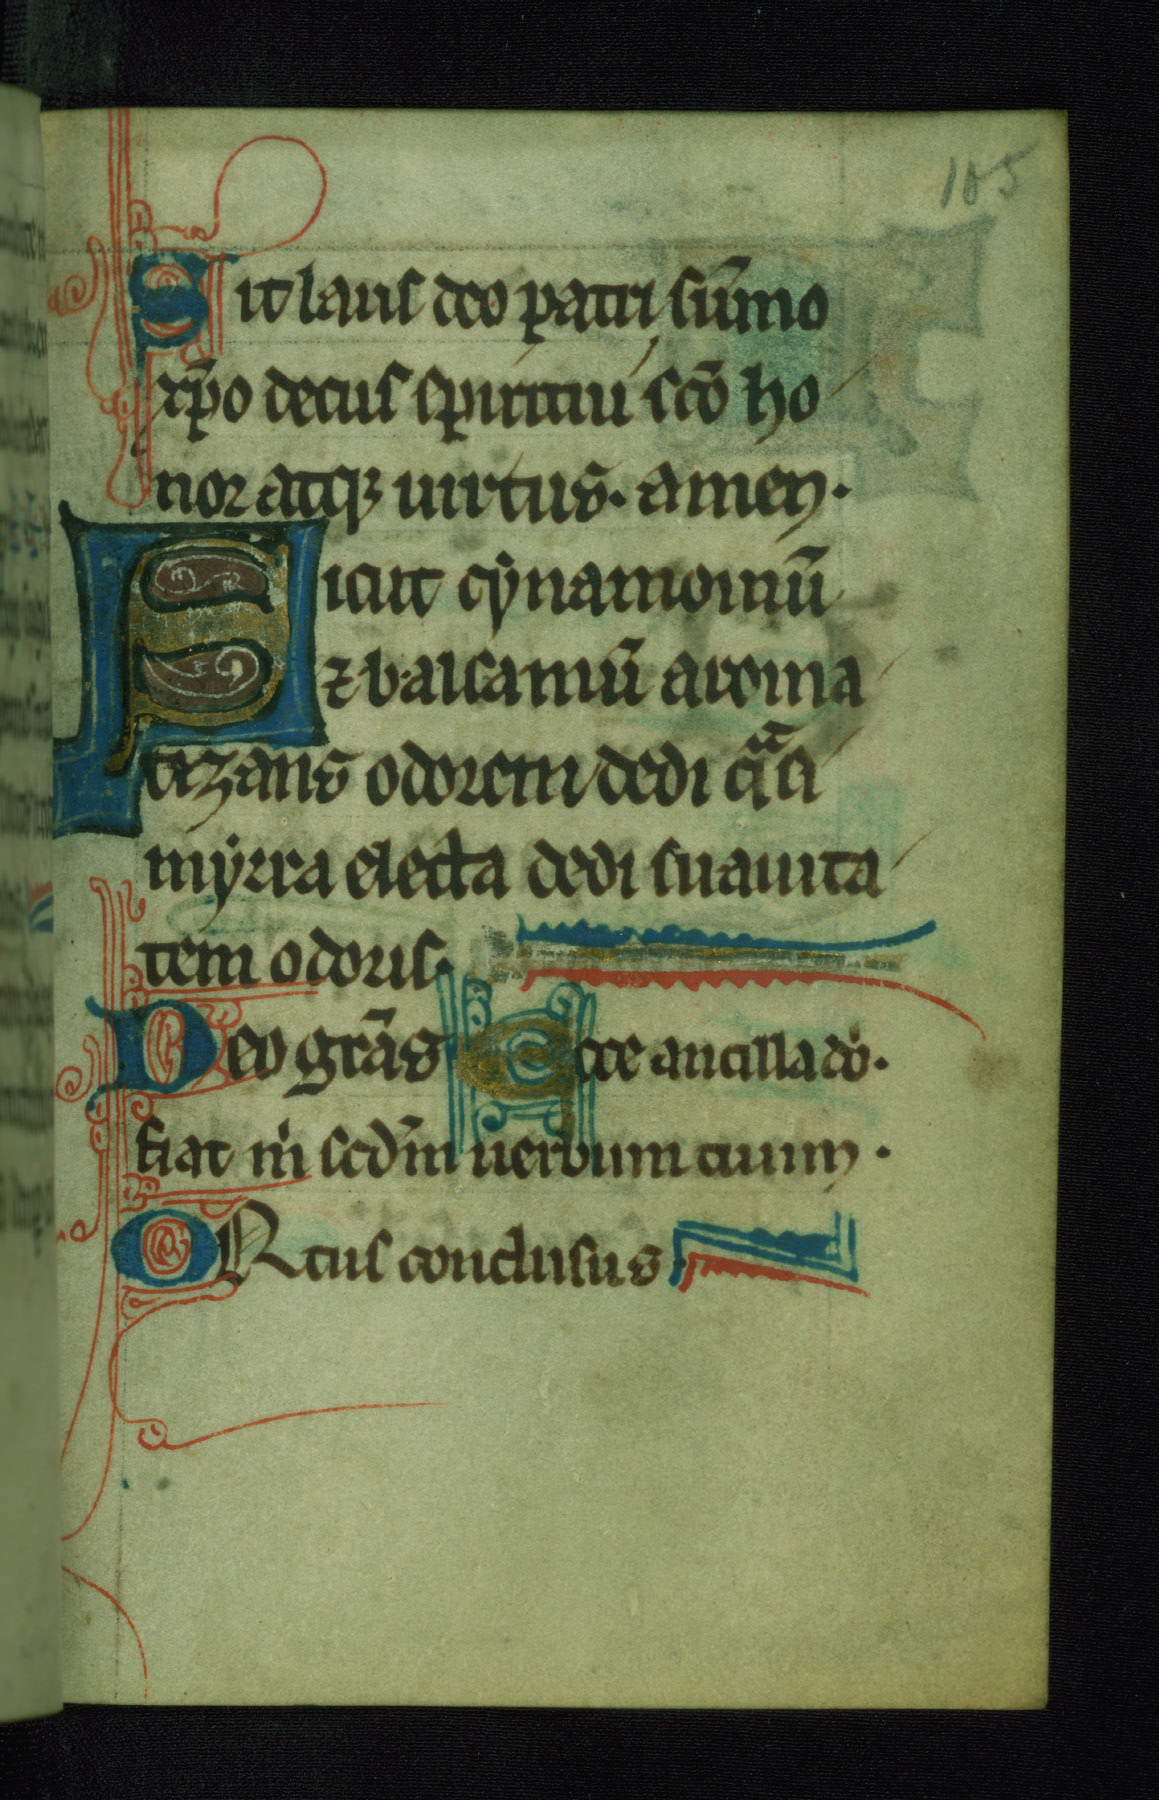 105
Sit laus deo patri sūmo
xp̄o decus spiritui sc̄o ho
nor atqꝫ uirtus. amen.
Sicut cẏnamomū
⁊ balsamū aroma
tizans odorem dedi qᵃsi
mẏrra electa dedi suauita
tem odoris.
Deo grās Ecce ancilla dō.
fiat m̍ scd̄m uerbum tuum.
ORtus conclusus